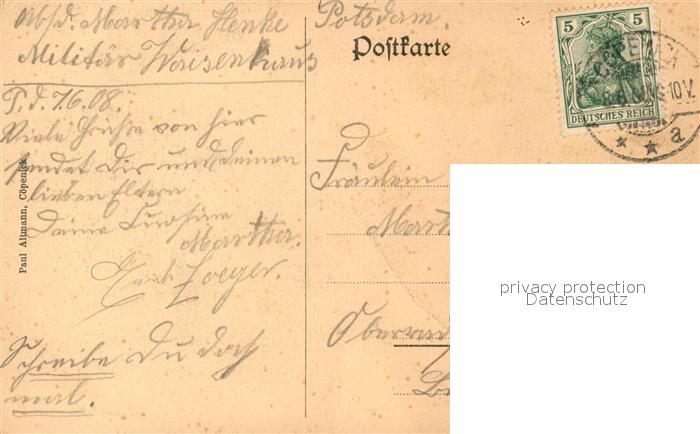 Abs/d. Martha Henke Potsdam.
Militär Waisenhaus
Postkarte
5 5
DEUTSCHES REICH
CÖPENICK
8-10V.
* * a
P. d. 7.6.08.
Viele Grüße von hier
sendet Dir und Deinen
lieben Eltern
Deine Cousine
Martha.
Erich Loeyer.
Schreibe Du doch
mal.
Paul Altmann, Cöpenick
Fräulein
Marth
Oberrad
privacy protection
Datenschutz